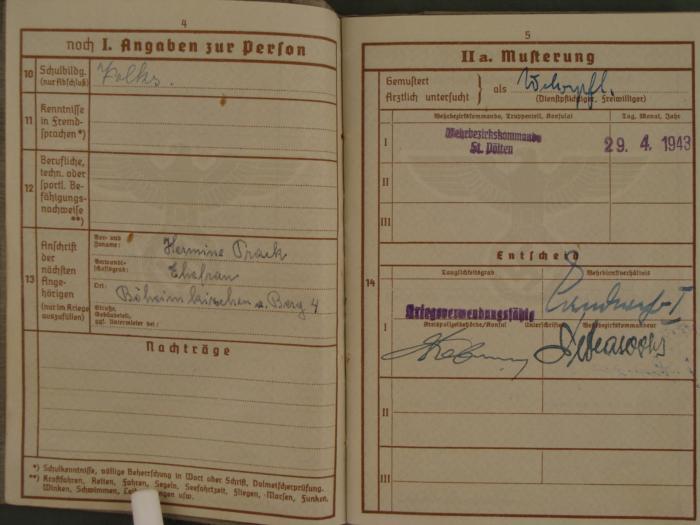 4
noch I. Angaben zur Person
10 Schulbildg. (nur Abschluß)
Volks.
11 Kenntnisse in Fremdsprachen *)
12 Berufliche, techn. oder sportl. Befähigungsnachweise **)
13 Anschrift der nächsten Angehörigen (nur im Kriege auszufüllen)
Vor- und Zuname: Hermine Prack
Verwandtschaftsgrad: Ehefrau
Ort: Böheimkirchen a. Berg 4
Straße, Gebäudeteil, ggf. Untermieter bei:
Nachträge
*) Schulkenntnisse, völlige Beherrschung in Wort oder Schrift, Dolmetscherprüfung.
**) Kraftfahren, Reiten, Fahren, Segeln, Seefahrtzeit, Fliegen, Morsen, Funken,
Winken, Schwimmen, usw.
5
II a. Musterung
Gemustert
Ärztlich untersucht } als Wehrpfl.
(Dienstpflichtiger, Freiwilliger)
Wehrbezirkskommando, Truppenteil, Konsulat
Tag, Monat, Jahr
I Wehrbezirkskommando
St. Pölten
29. 4. 1943
II
III
Entscheid
14
Tauglichkeitsgrad
Wehrdienstverhältnis
Kriegsverwendungsfähig
Landwehr I
Kreispolizeibehörde/Konsul Unterschriften Wehrbezirkskommandeur
I
II
III